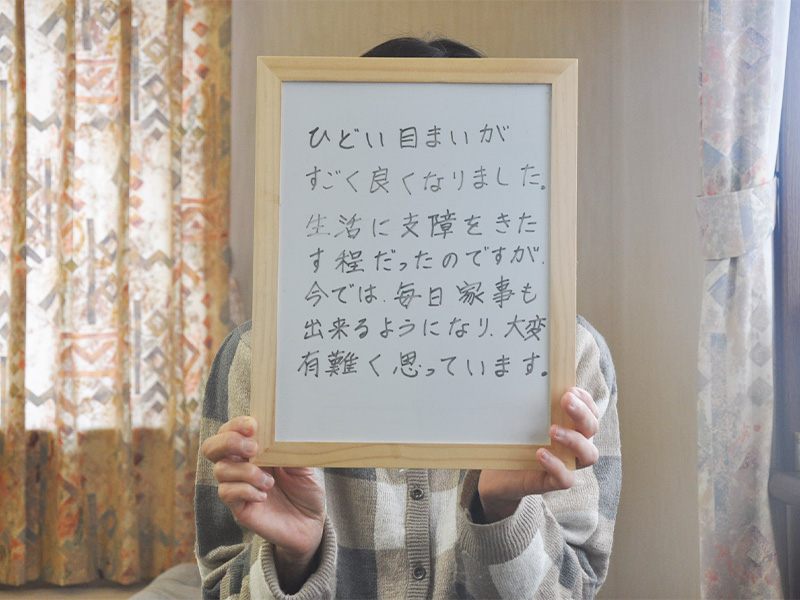 ひどい目まいが
すごく良くなりました。
生活に支障をきた
す程だったのですが、
今では、毎日家事も
出来るようになり、大変
有難く思っています。